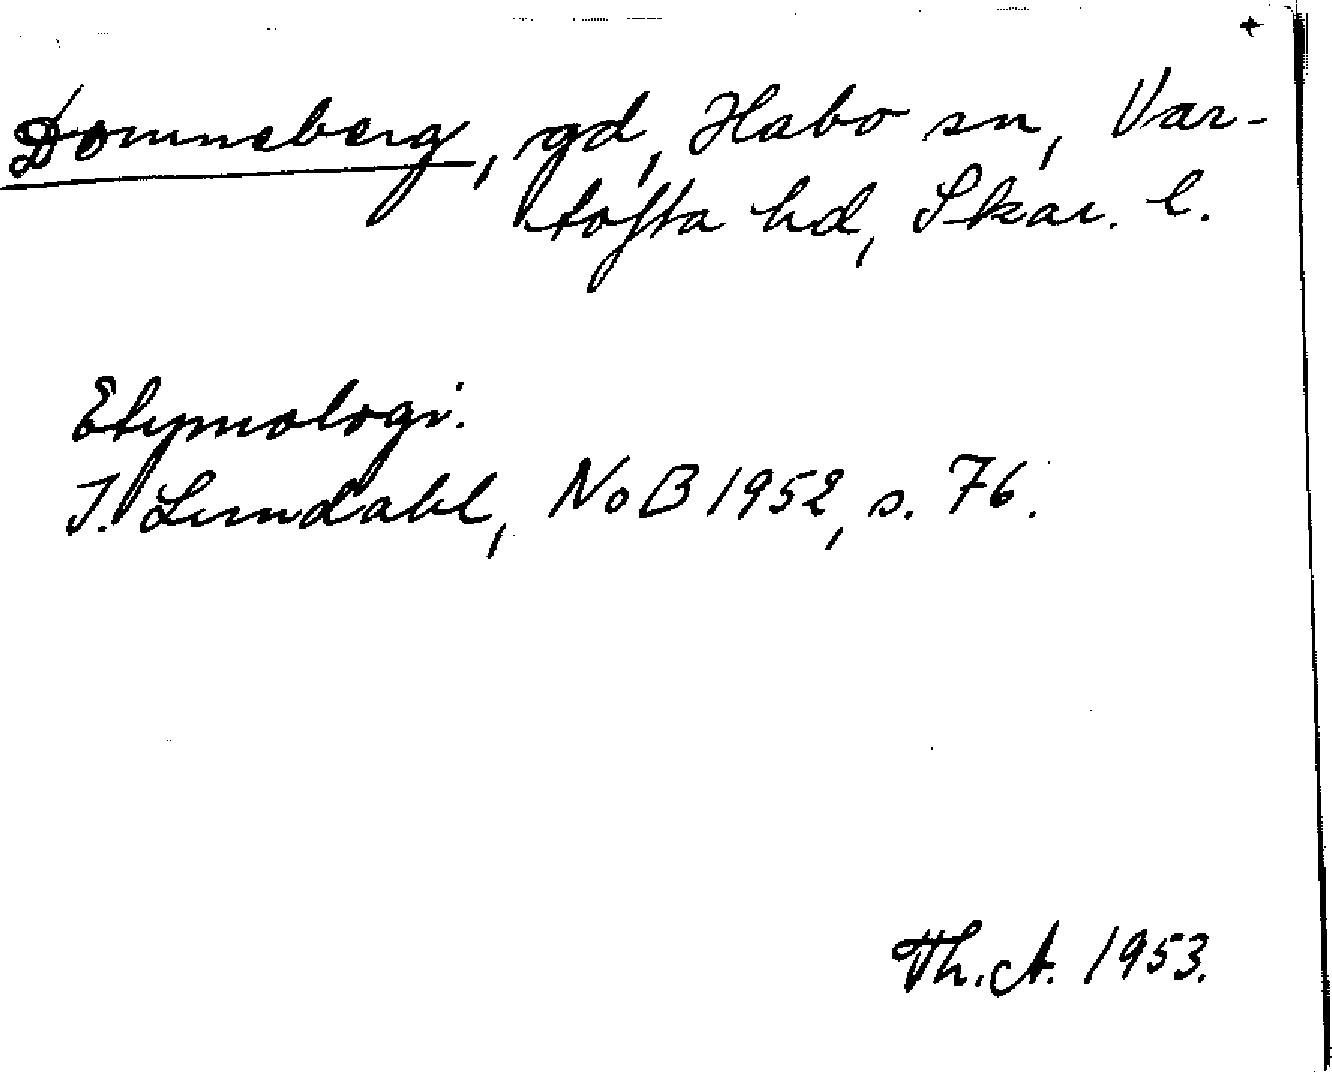 +
Domneberg, gd, Habo sn, Var-
tofta hd, Skar. l.
Etymologi.
I. Lundahl, NoB 1952, s. 76.
Th. A. 1953.